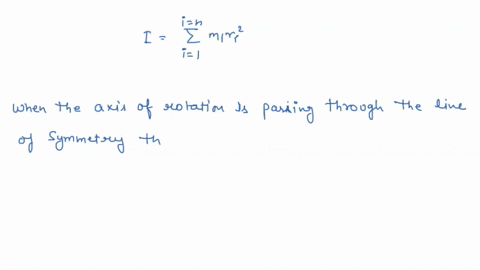 i=n
I = Σ m₁r₁²
i=1
When the axis of rotation is passing through the line
of Symmetry th